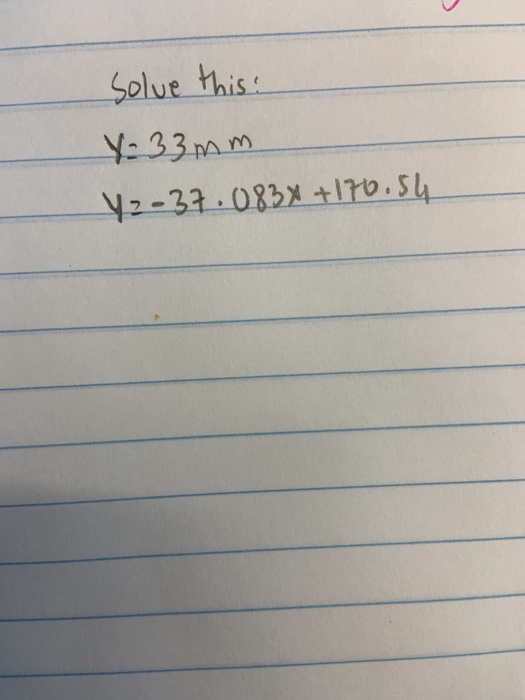 Solve this:
Y=33mm
Y=-37.083x+170.54